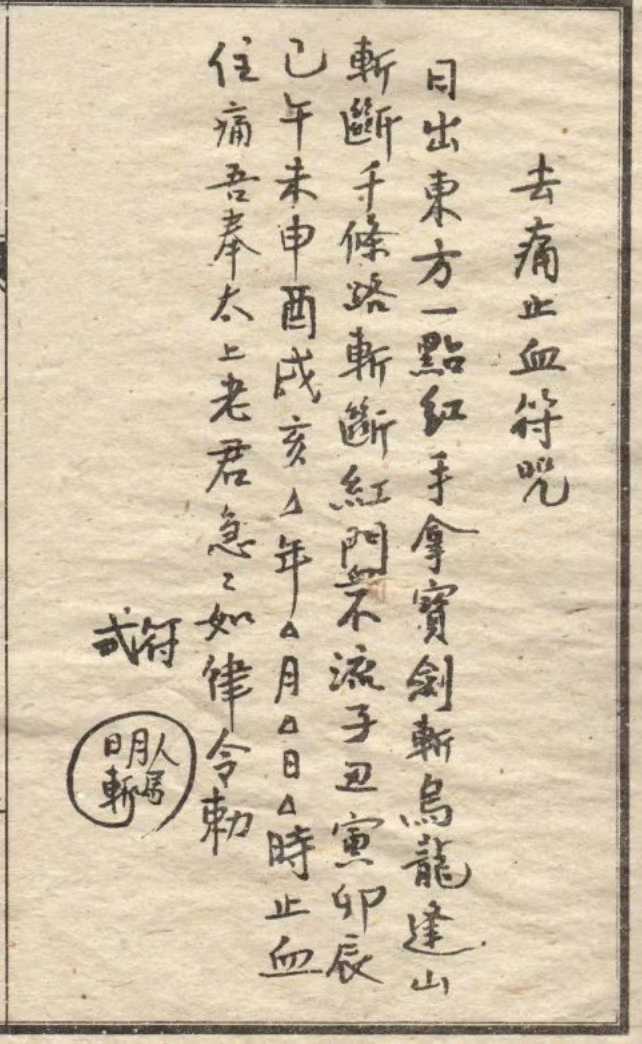 去痛止血符咒
日出東方一點紅手拿寳劍斬烏龍逢山
斬斷千條路斬斷紅門血不流子丑寅卯辰
巳午未申酉戌亥△年△月△日△時止血
住痛吾奉太上老君急〻如律令勅
符式
人
日月斬